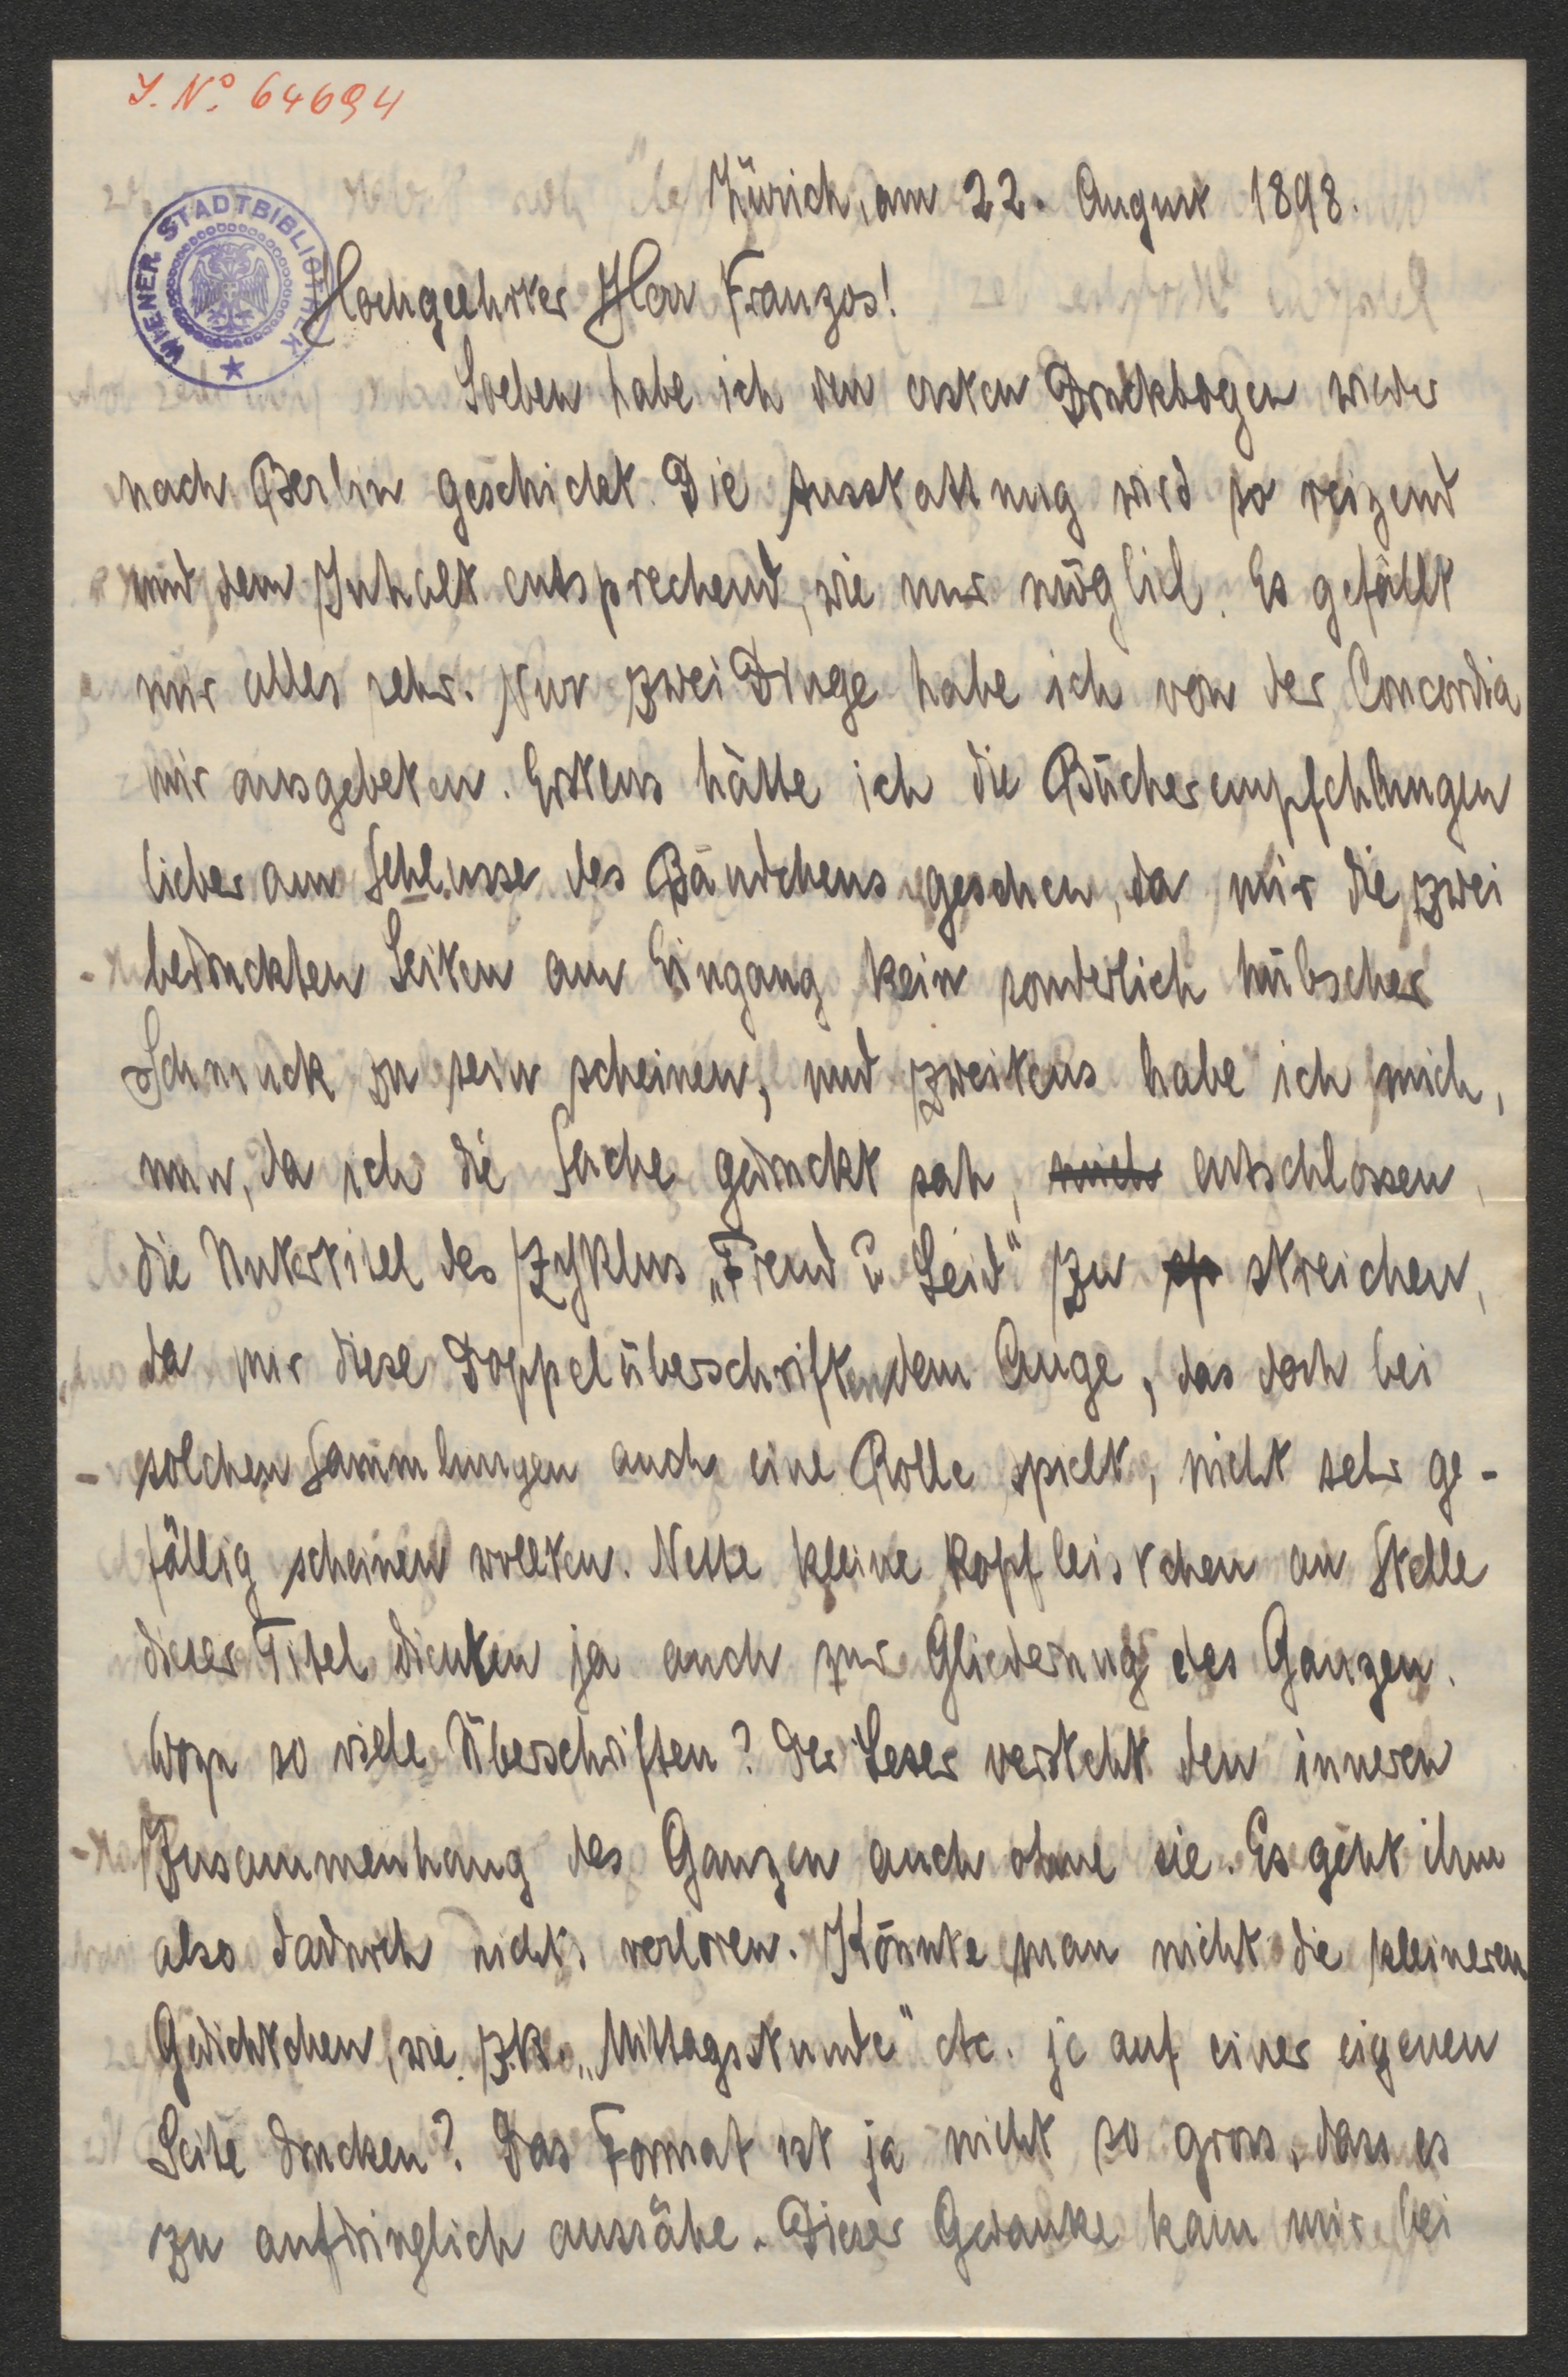 J. Nº 64694
WIENER STADTBIBLIOTHEK
Zürich, am 22. August 1898.
Hochgeehrter Herr Franzos!
Soeben habe ich den ersten Druckbogen wieder
nach Berlin geschickt. Die Ausstattung wird so reizend
und dem Inhalt entsprechend, wie nur möglich. Es gefällt
mir alles sehr. Nur zwei Dinge habe ich von der Concordia
mir ausgebeten. Erstens hätte ich die Bücherempfehlungen
lieber am Schlusse des Bändchens gesehen, da mir die zwei
bedruckten Seiten am Eingang kein sonderlich hübscher
Schmuck zu sein scheinen, und zweitens habe ich mich,
nun, da ich die Sache gedruckt sah, mich entschlossen,
die Untertitel des Zyklus „Freud u. Leid" zu streichen,
da mir diese Doppelüberschriften dem Auge, das doch bei
solchen Sammlungen auch eine Rolle spielt, nicht sehr ge-
fällig scheinen wollten. Nette kleine Kopfleistchen an Stelle
dieser Titel dienten ja auch zur Gliederung des Ganzen.
Wozu so viele Überschriften? Der Leser versteht den inneren
Zusammenhang des Ganzen auch ohne sie. Es geht ihm
also dadurch nichts verloren. Könnte man nicht die kleineren
Gedichtchen, wie z.B. „Mittagsstunde" etc. je auf einer eigenen
Seite drucken? Das Format ist ja nicht so gross, dass es
zu aufdringlich aussähe. Dieser Gedanke kam mir bei